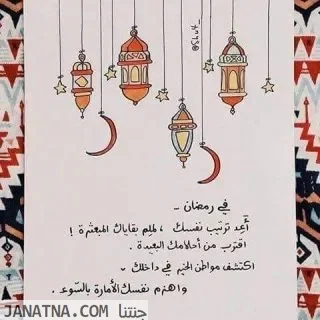 @Shuk_
في رمضان -
أَعِد ترتيب نفسك ، لملِم بقاياك المبعثرة !
اقترب من أحلامك البعيدة .
اكتشف مواطن الخير في داخلك -
واهزم نفسك الأمارة بالسّوء .
JANATNA.COM جنتنا